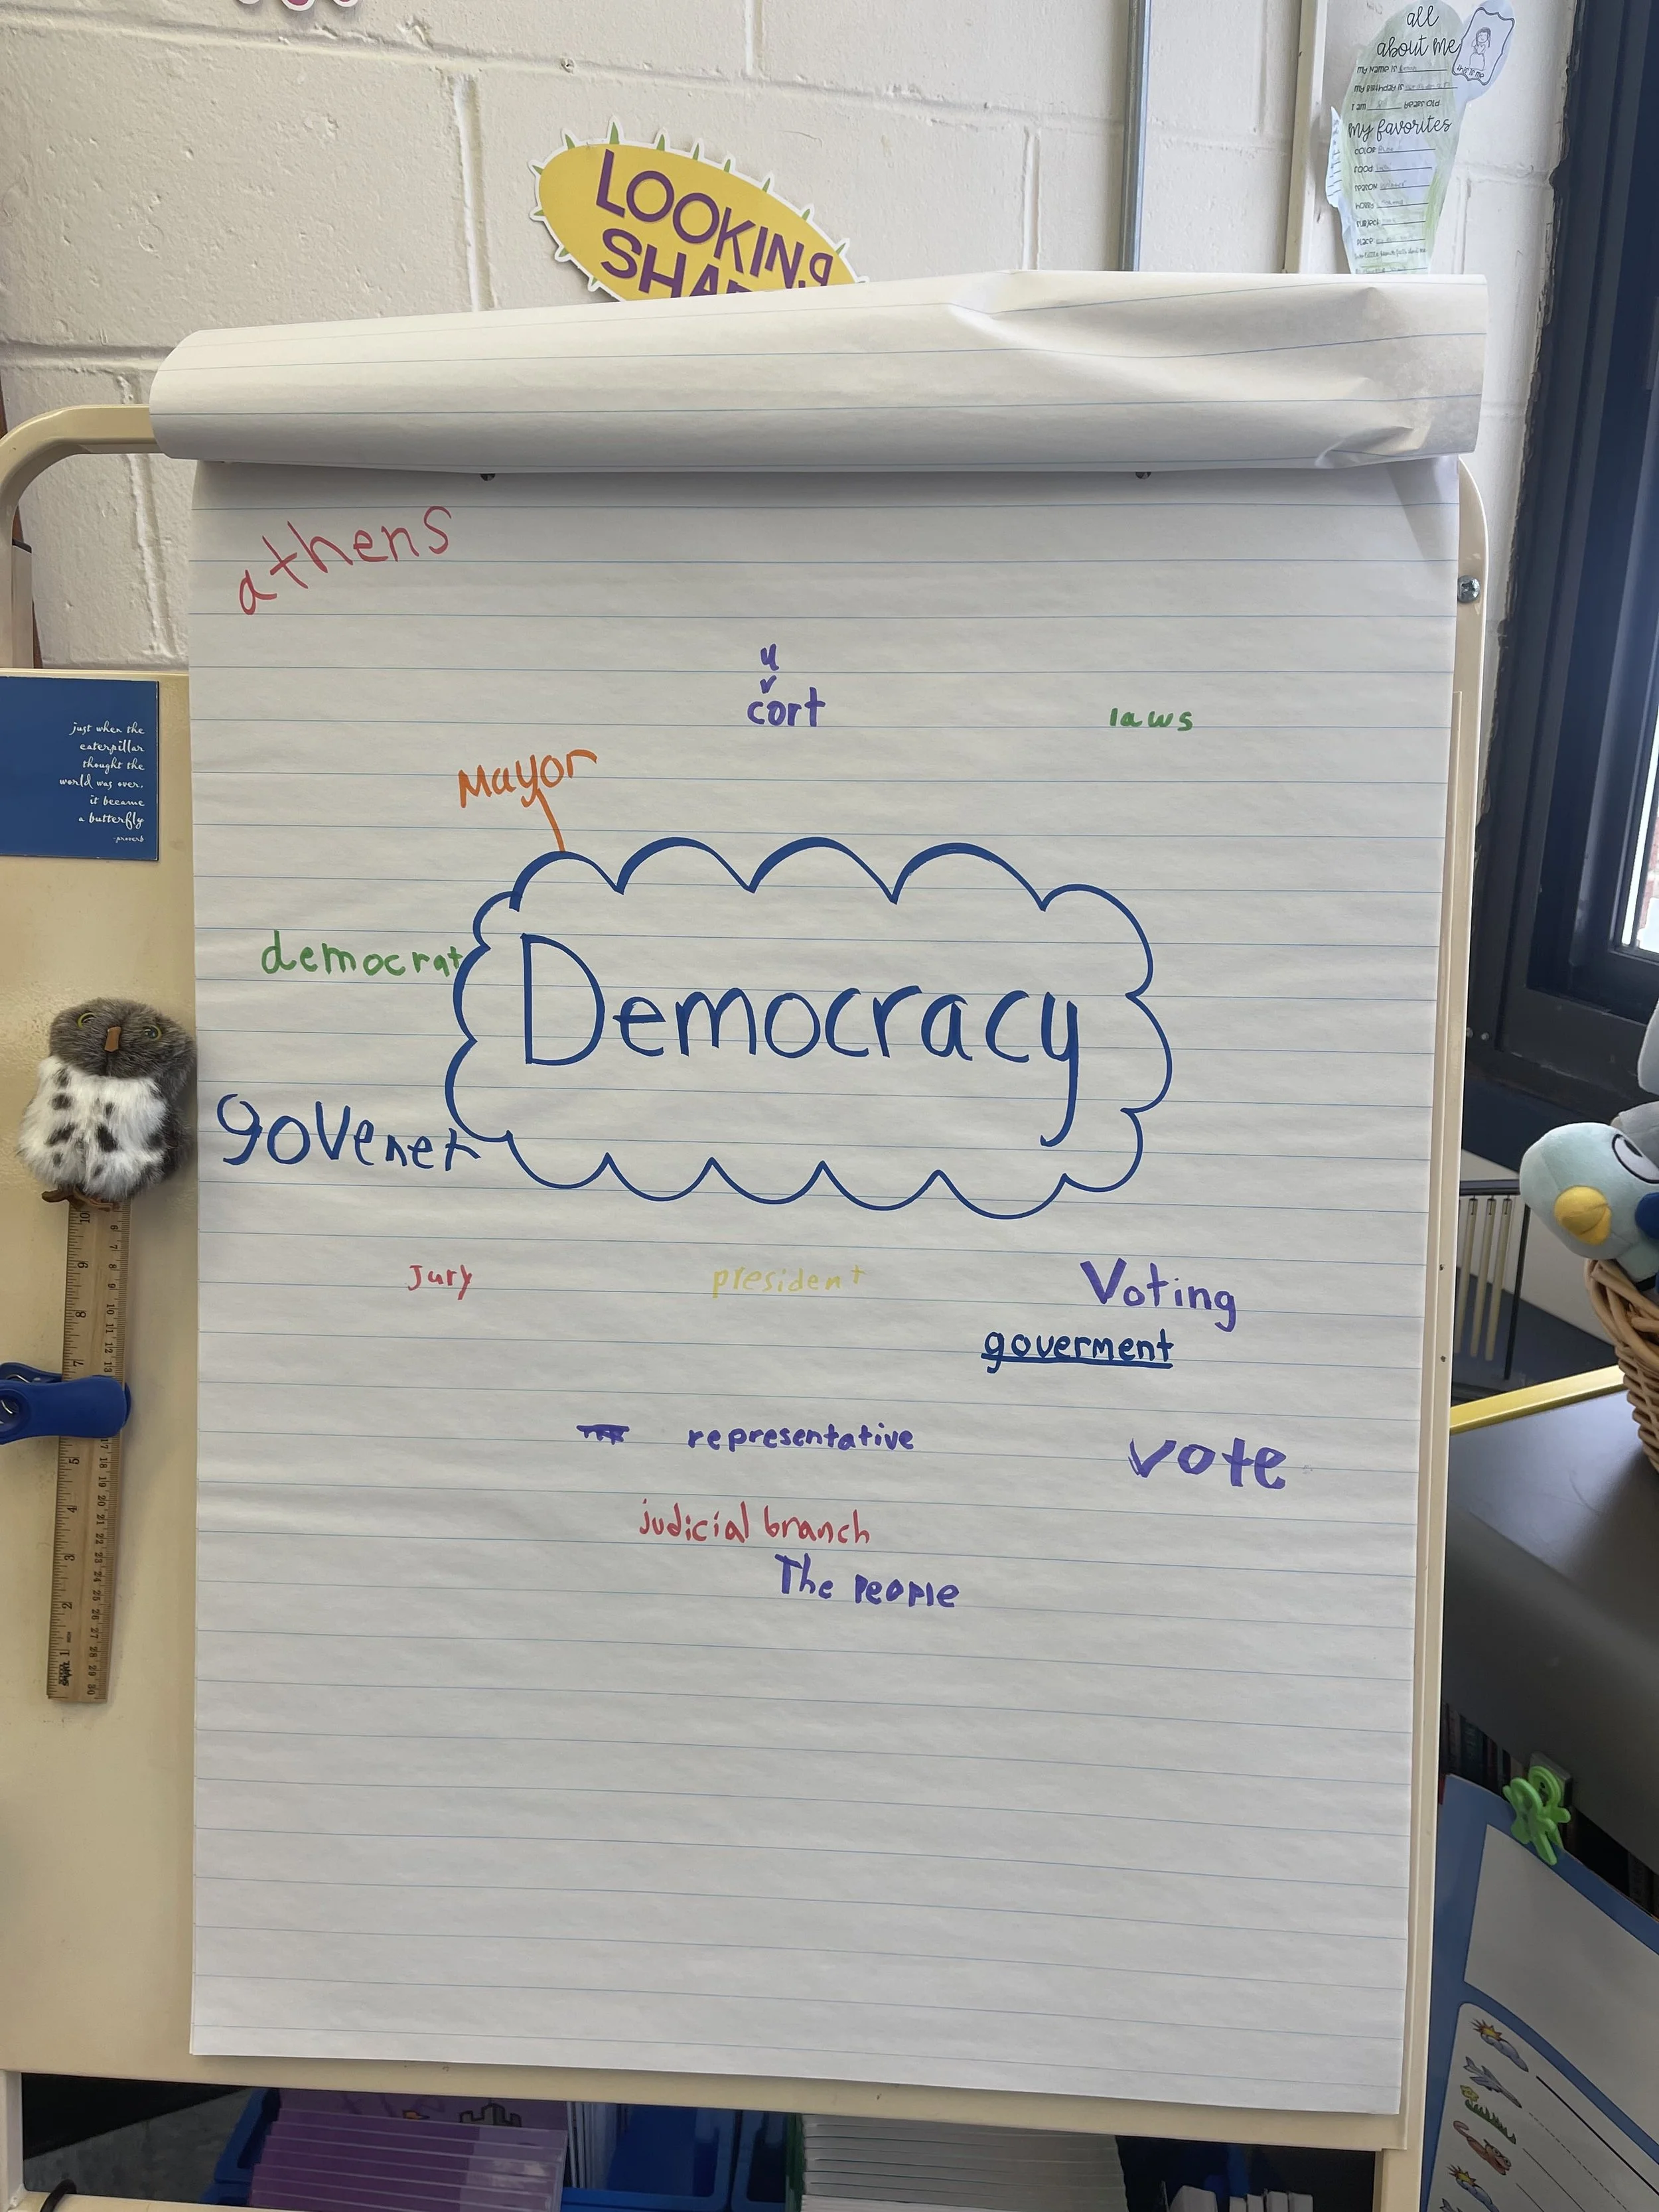 all
about me
MY NAME IS
MY BIRTHDAY IS
I am years old
my favorites
COLOR
FOOD
SEASON
HOBBY
SUBJECT
PLACE
LOOKING
athens
u
cort
laws
just when the
caterpillar
thought the
world was over,
it became
a butterfly
-proverb
Mayor
democrat
Democracy
govenet
Jury
president
Voting
goverment
representative
vote
judicial branch
The People